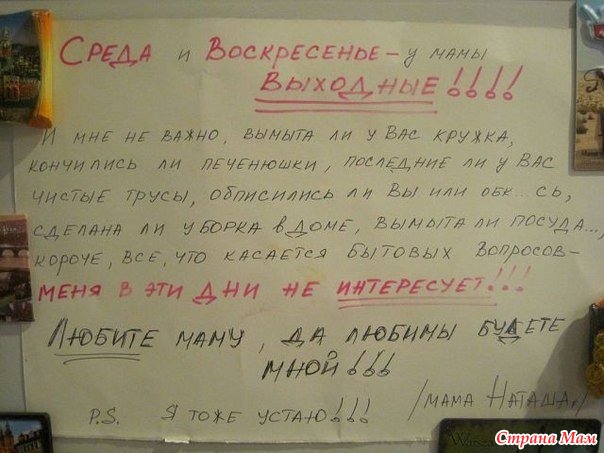 Среда и Воскресенье – у мамы
выходные!!!!
И мне не важно, вымыта ли у Вас кружка,
кончились ли печенюшки, последние ли у Вас
чистые трусы, обписились ли Вы или обк...сь,
сделана ли уборка в доме, вымыта ли посуда...,
короче, всё, что касается бытовых вопросов –
меня в эти дни не интересует!!!
Любите маму, да любимы будете
мной!!!
/мама Наташа/
P.S. Я тоже устаю!!!
Страна Мам